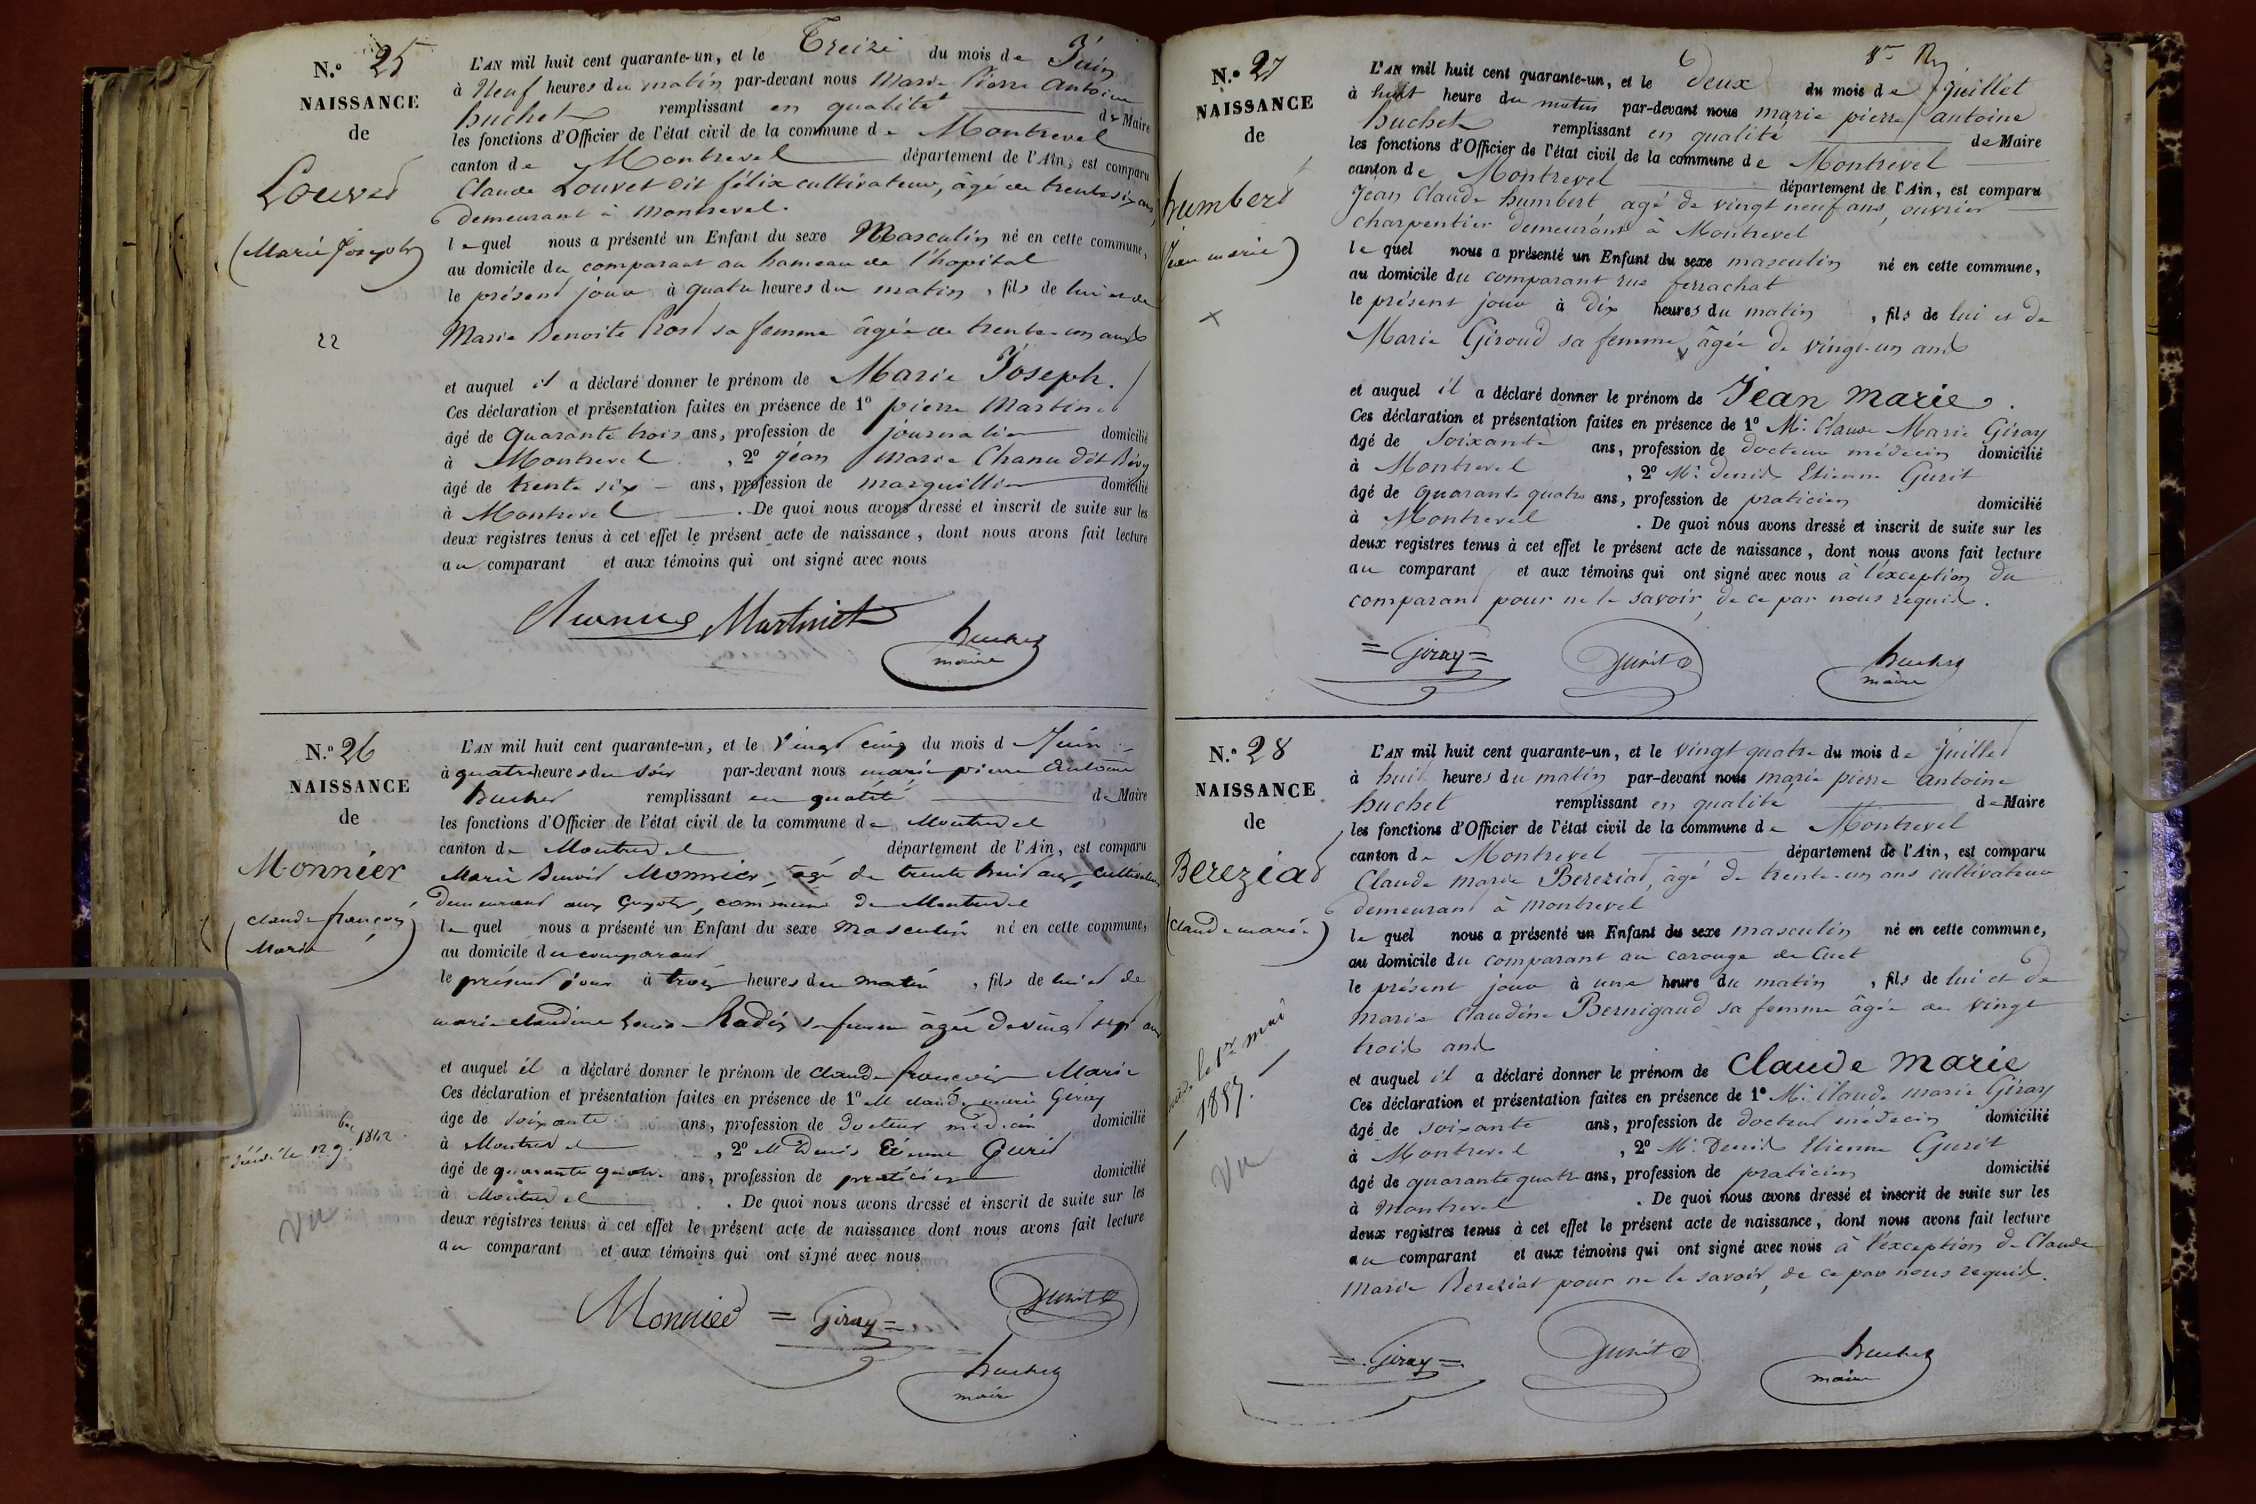 N.° 25
NAISSANCE
de
Louvet
(Marie Joseph)
22
L'AN mil huit cent quarante-un, et le Treize du mois de Juin
à Neuf heures du matin par-devant nous Marie Pierre Antoine
huchet remplissant en qualité de Maire
les fonctions d'Officier de l'état civil de la commune de Montrevel
canton de Montrevel département de l'Ain, est comparu
Claude Louvet dit félix cultivateur, âgé de trente six ans
demeurant à Montrevel.
lequel nous a présenté un Enfant du sexe Masculin né en cette commune,
au domicile du comparant au hameau de l'hopital
le présent jour à quatre heures du matin, fils de lui et de
Marie Benoite Prost sa femme âgée de trente-un ans
et auquel il a déclaré donner le prénom de Marie Joseph.
Ces déclaration et présentation faites en présence de 1° pierre Martinet
âgé de Quarante trois ans, profession de journalier domicilié
à Montrevel, 2° Jéan Marie Chanu dit
âgé de trente six ans, profession de marguillier domicilié
à Montrevel. De quoi nous avons dressé et inscrit de suite sur les
deux registres tenus à cet effet le présent acte de naissance, dont nous avons fait lecture
au comparant et aux témoins qui ont signé avec nous
Martinet
huchet
maire
N.° 26
NAISSANCE
de
Monnier
(claude françois
Marie)
1842
vu
L'AN mil huit cent quarante-un, et le vingt cinq du mois de Juin
à quatre heures du soir par-devant nous marie pierre Antoine
huchet remplissant en qualité de Maire
les fonctions d'Officier de l'état civil de la commune de Montrevel
canton de Montrevel département de l'Ain, est comparu
Marie Benoit Monnier, âgé de trente huit ans, cultivateur
demeurant aux Guyots, commune de Montrevel
lequel nous a présenté un Enfant du sexe Masculin né en cette commune,
au domicile du comparant
le présent jour à trois heures du matin, fils de lui et de
marie claudine Louise Radix sa femme âgée de vingt sept ans
et auquel il a déclaré donner le prénom de claude françois Marie
Ces déclaration et présentation faites en présence de 1° M claude marie Giray
âgé de soixante ans, profession de docteur médecin domicilié
à Montrevel, 2° M Denis Etienne Gurit
âgé de quarante quatre ans, profession de praticien domicilié
à Montrevel. De quoi nous avons dressé et inscrit de suite sur les
deux régistres tenus à cet effet le présent acte de naissance dont nous avons fait lecture
au comparant et aux témoins qui ont signé avec nous
Monnier = Giray = Gurit
huchet
maire
N.° 27
NAISSANCE
de
humbert
(Jean marie)
L'AN mil huit cent quarante-un, et le Deux du mois de Juillet
à huit heure du matin par-devant nous marie pierre antoine
huchet remplissant en qualité de Maire
les fonctions d'Officier de l'état civil de la commune de Montrevel
canton de Montrevel département de l'Ain, est comparu
Jean Claude humbert âgé de vingt neuf ans, ouvrier
charpentier demeurant à Montrevel
lequel nous a présenté un Enfant du sexe masculin né en cette commune,
au domicile du comparant rue ferrachat
le présent jour à dix heures du matin, fils de lui et de
Marie Giroud sa femme, âgée de vingt-un ans
et auquel il a déclaré donner le prénom de Jean marie.
Ces déclaration et présentation faites en présence de 1° Mr. Claude Marie Giray
âgé de soixante ans, profession de docteur médecin domicilié
à Montrevel, 2° Mr. Denis Etienne Gurit
âgé de quarante quatre ans, profession de praticien domicilié
à Montrevel. De quoi nous avons dressé et inscrit de suite sur les
deux registres tenus à cet effet le présent acte de naissance, dont nous avons fait lecture
au comparant et aux témoins qui ont signé avec nous à l'exception du
comparant pour ne le savoir, de ce par nous requis.
= Giray = Gurit huchet
maire
N.° 28
NAISSANCE
de
Bereziat
(claude marie)
le 1er mai
1857.
vu
L'AN mil huit cent quarante-un, et le vingt quatre du mois de juillet
à huit heures du matin par-devant nous marie pierre antoine
huchet remplissant en qualité de Maire
les fonctions d'Officier de l'état civil de la commune de Montrevel
canton de Montrevel département de l'Ain, est comparu
Claude marie Bereziat, âgé de trente-un ans cultivateur
demeurant à montrevel
lequel nous a présenté un Enfant du sexe masculin né en cette commune,
au domicile du comparant au carouge de Cuet
le présent jour à une heure du matin, fils de lui et de
marie claudine Bernigaud sa femme âgée de vingt
trois ans
et auquel il a déclaré donner le prénom de claude marie
Ces déclaration et présentation faites en présence de 1° Mr. Claude marie Giray
âgé de soixante ans, profession de docteur médecin domicilié
à Montrevel, 2° Mr. Denis Etienne Gurit
âgé de quarante quatre ans, profession de praticien domicilié
à montrevel. De quoi nous avons dressé et inscrit de suite sur les
deux registres tenus à cet effet le présent acte de naissance, dont nous avons fait lecture
au comparant et aux témoins qui ont signé avec nous à l'exception de Claude
marie Bereziat pour ne le savoir, de ce par nous requis.
= Giray = Gurit huchet
maire